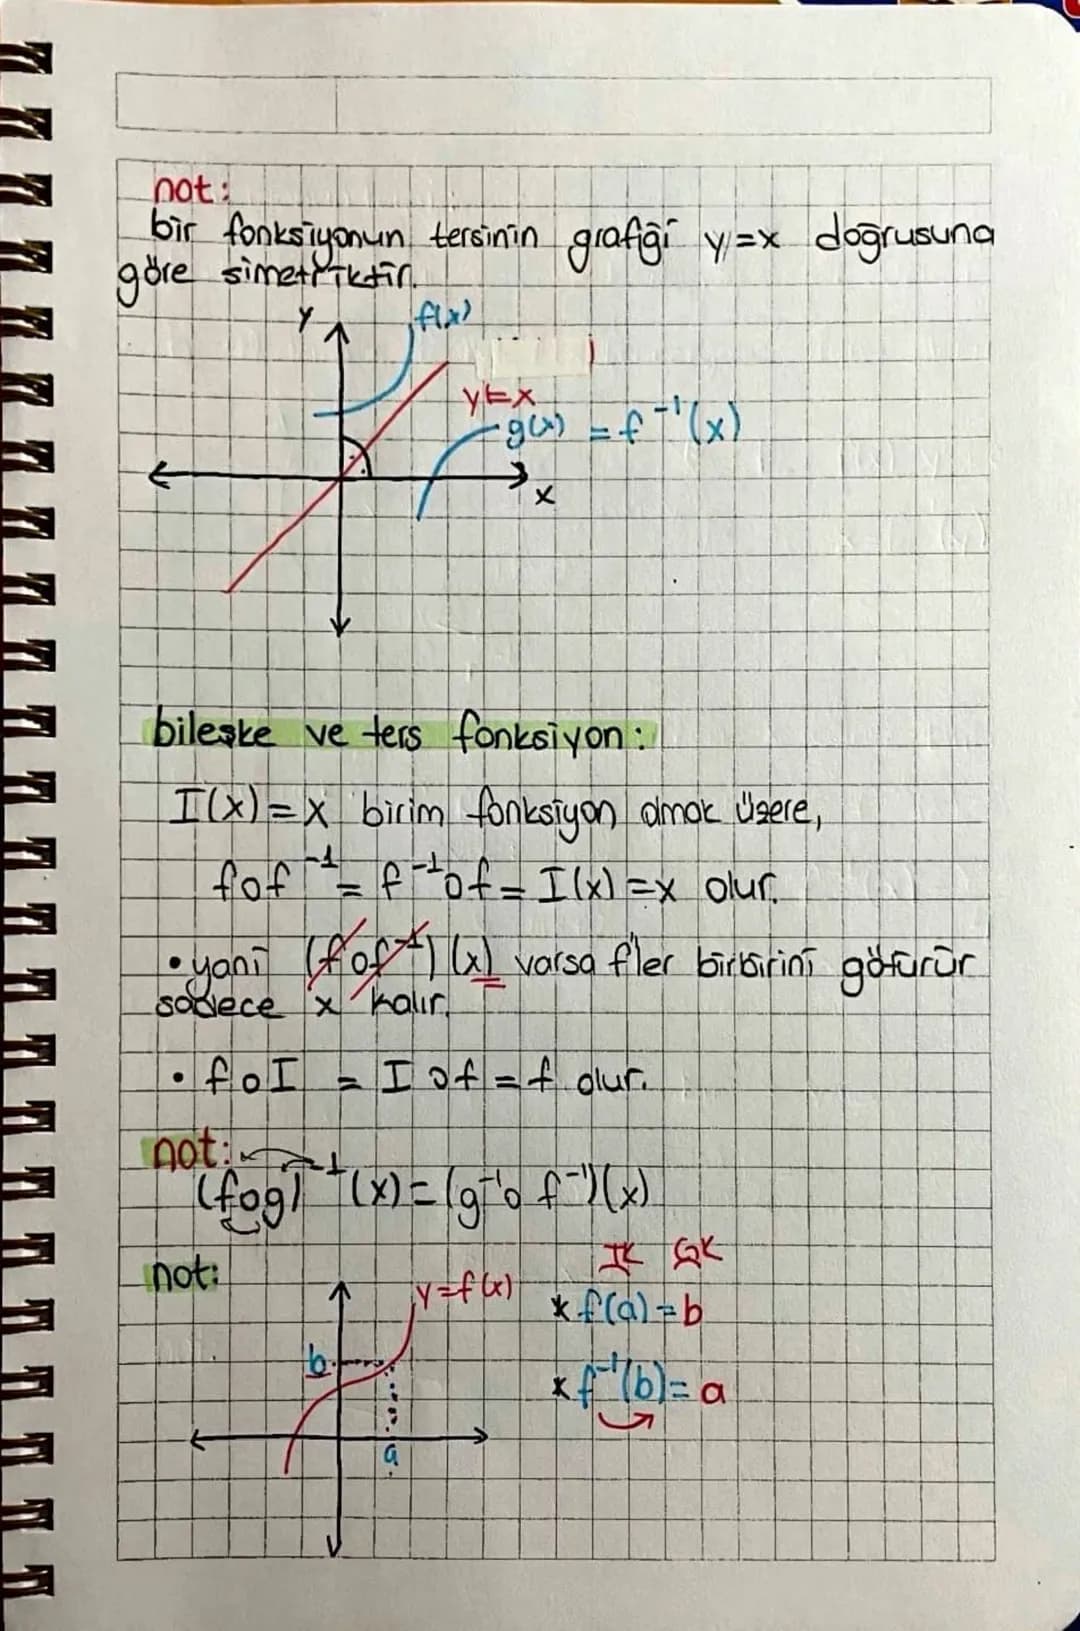 not:
bir fonksiyonun tersinin grafiği y=x doğrusuna
göre simetriktir.
y
f(x)
y=x
g(x) = f⁻¹(x)
x
bileşke ve ters fonksiyon:
I(x)=x birim fonksiyon olmak üzere,
fof⁻¹ = f⁻¹of = I(x) = x olur.
• yani (fof⁻¹)(x) varsa f'ler birbirini götürür
sadece x kalır.
• foI = Iof = f olur.
not:
(fog)⁻¹(x) = (g⁻¹o f⁻¹)(x)
not:
y=f(x)
b
a
İK GK
* f(a) = b
* f⁻¹(b) = a